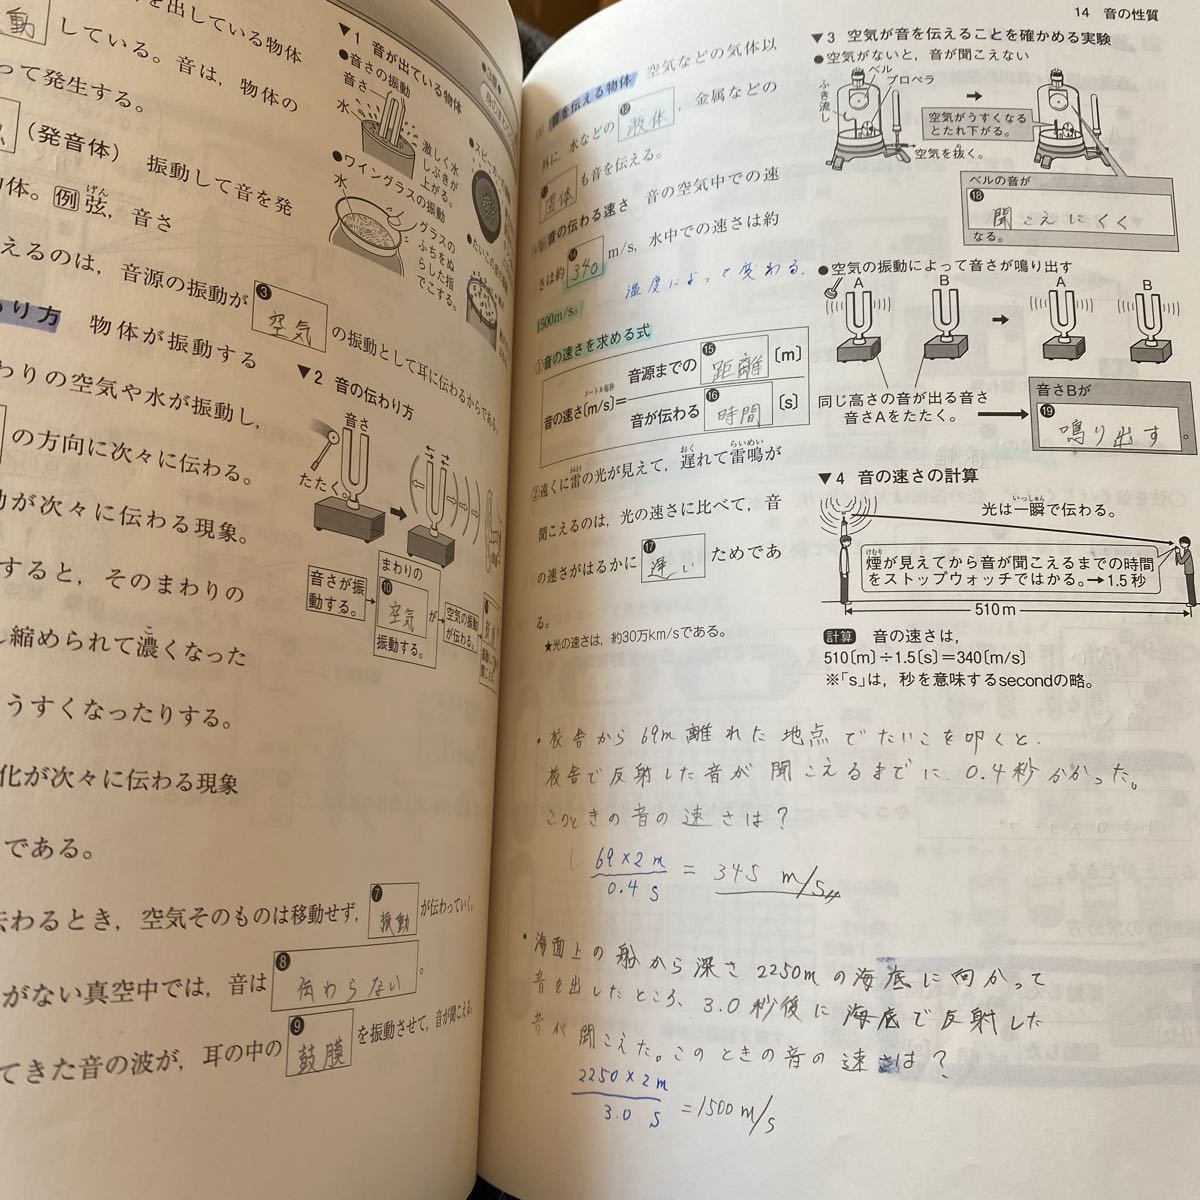 を出している物体
動
している。音は，物体の
って発生する。
(発音体) 振動して音を発
物体。例 弦，音さ
げん
えるのは，音源の振動が ❸ 空気 の振動として耳に伝わるからである。
わり方 物体が振動する
わりの空気や水が振動し，
の方向に次々に伝わる。
動が次々に伝わる現象
すると，そのまわりの
縮められて濃くなった
うすくなったりする。
化が次々に伝わる現象
である。
伝わるとき，空気そのものは移動せず，❼ 振動 が伝わっていく。
がない真空中では，音は ❽ 伝わらない 。
てきた音の波が，耳の中の ❾ 鼓膜 を振動させて，音が聞こえる。
▼1 音が出ている物体
●音さの振動
音さ
水
激しく水しぶきが上がる。
●ワイングラスの振動
水
グラスのふちをぬらした指でこする。
▼2 音の伝わり方
音さ
たたく。
音さが振動する。
まわりの
❿ 空気 が
振動する。
空気の振動が伝わる。
14 音の性質
音を伝える物体 空気などの気体以
外に，水などの ⓬ 液体 ，金属などの
固体 も音を伝える。
音の伝わる速さ 音の空気中での速
さは約 ⓮ 340 m/s，水中での速さは約
温度によって変わる.
1500m/s。
①音の速さを求める式
メートル毎秒
音の速さ〔m/s〕= 音源までの ⓯ 距離 〔m〕
音が伝わる ⓰ 時間 〔s〕
②遠くに雷の光が見えて，遅れて雷鳴が
かみなり おく らいめい
聞こえるのは，光の速さに比べて，音
の速さがはるかに ⓱ 遅い ためであ
る。
★光の速さは，約30万km/sである。
▼3 空気が音を伝えることを確かめる実験
●空気がないと，音が聞こえない
ベル
プロペラ
ふき流し
空気がうすくなるとたれ下がる。
空気を抜く。
ベルの音が
⓲ 聞こえにくく
なる。
●空気の振動によって音さが鳴り出す
A B A B
同じ高さの音が出る音さ
音さAをたたく。
音さBが
⓳ 鳴り出す。
▼4 音の速さの計算
いっしゅん
光は一瞬で伝わる。
けむり
煙が見えてから音が聞こえるまでの時間
をストップウォッチではかる。→1.5秒
510m
計算 音の速さは，
510〔m〕÷1.5〔s〕=340〔m/s〕
※「s」は，秒を意味するsecondの略。
・校舎から69m離れた地点でたいこを叩くと.
校舎で反射した音が聞こえるまでに0.4秒かかった。
このときの音の速さは？
69×2 m
0.4 s
= 345 m/s
・海面上の船から深さ2250mの海底に向かって
音を出したところ、3.0秒後に海底で反射した
音が聞こえた。このときの音の速さは？
2250×2 m
3.0 s
=1500 m/s